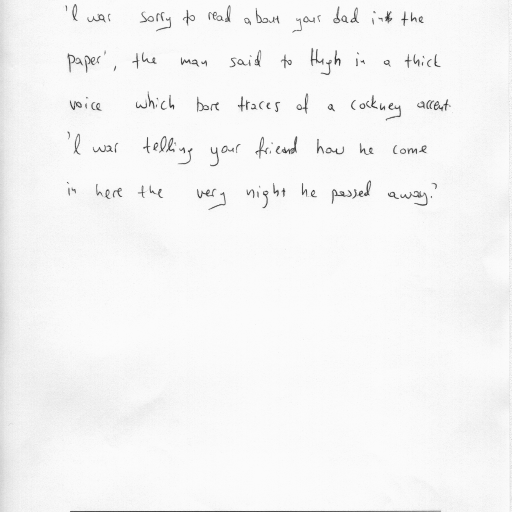 'I was sorry to read about your dad in the
paper', the man said to Hugh in a thick
voice which bore traces of a cockney accent.
'I was telling your friend how he come
in here the very night he passed away.'